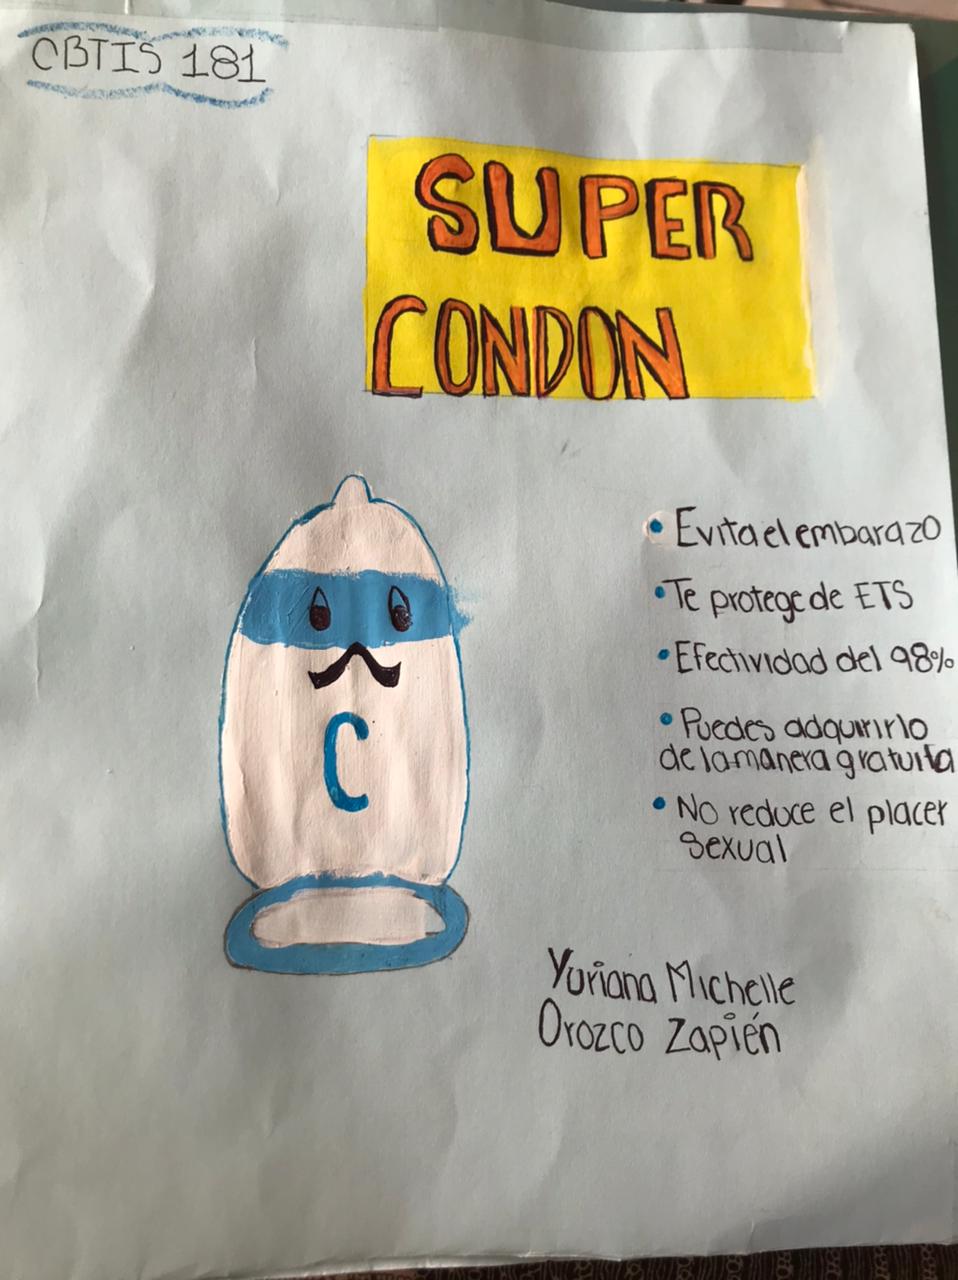 CBTIS 181
SUPER
CONDON
• Evita el embarazo
• Te protege de ETS
• Efectividad del 98%
• Puedes adquirirlo
de la manera gratuita
• No reduce el placer
sexual
C
Yuriana Michelle
Orozco Zapién